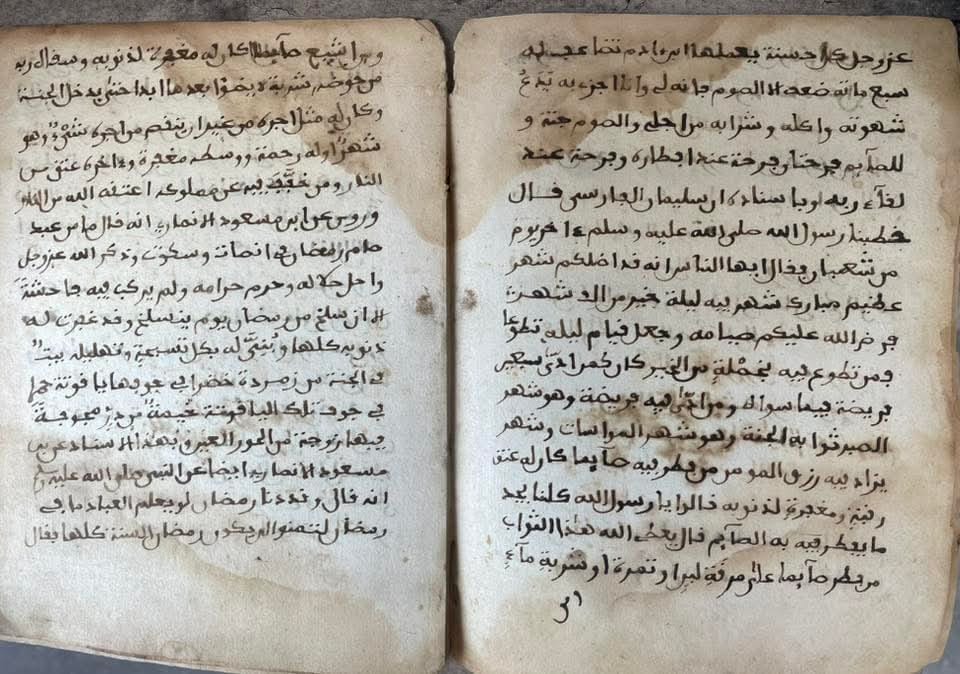 عز وجل كل حسنة يعملها ابن ادم تضاعف له
سبع مائة ضعف الا الصوم فانه لي وانا اجزء به يدع
شهوته واكله وشرابه من اجلي والصوم جنة و
للصآيم فرحتان فرحة عند افطاره وفرحة عند
لقآء ربه وباسناده ان سليمان الفارسي فال
خطبنا رسول الله صلى الله عليه وسلم ءاخر يوم
من شعبان فقال ايها الناس انه قد اظلكم شهر
عظيم مبارك شهر فيه ليلة خير من الف شهر
فرض الله عليكم صيامه وجعل قيام ليله تطوعا
فمن تطوع فيه بخصلة من الخير كان كمن ادى سبعين
فريضة فيما سواه ومن ادى فيه فريضة وهو شهر
الصبر ثوابه الجنة وهو شهر المواسات وشهر
يزاد فيه رزق المومن من فطر فيه صآيما كان له عتق
رقبة ومغفرة لذنوبه قالوا يا رسول الله كلنا يجد
ما يفطر فيه به الصآيم قال يعطى الله هذا الثواب
من فطر صآيما على مرقة لبن او تمرة او شربة مآء
ومن اشبع صآيما كان له مغفرة لذنوبه وسقاه ربه
من حوضه شربة لا يضمؤا بعدها ابدا حتى يدخل الجنة
وكان له مثل اجره من غير ان ينقص من اجره شيء وهو
شهر اوله رحمة ووسطه مغفرة وءاخره عتق من
النار ومن خفف فيه عن مملوكه اعتقه الله من النار
وروي عن ابن مسعود الانصاري انه قال ما من عبد
صام رمضان في انصات وسكوت وذكر الله عز وجل
واحل حلاله وحرم حرامه ولم يركب فيه فاحشة
الا انسلخ من رمضان يوم ينسلخ وقد غفرت له
ذنوبه كلها وبني له بكل تسبيحة وتهليلة بيت
في الجنة من زمردة خضرا في جوفها ياقوتة حمرا
في جوف تلك الياقوتة خيمة من در مجوفة
فيها زوجة من الحور العين وبهذا الاسناد عن بن
مسعود الانصاري ايضا عن النبي صلى الله عليه وسلم
انه قال وقد دنا رمضان لو يعلم العباد ما في
رمضان لتمنوا ان يكون رمضان السنة كلها فقال